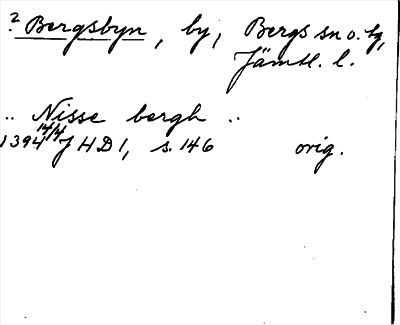 ? Bergsbyn, by, Bergs sn o. tg,
Jämtl. l.
.. Nisse bergh ..
1394 14/4 JHD 1, s. 146 orig.